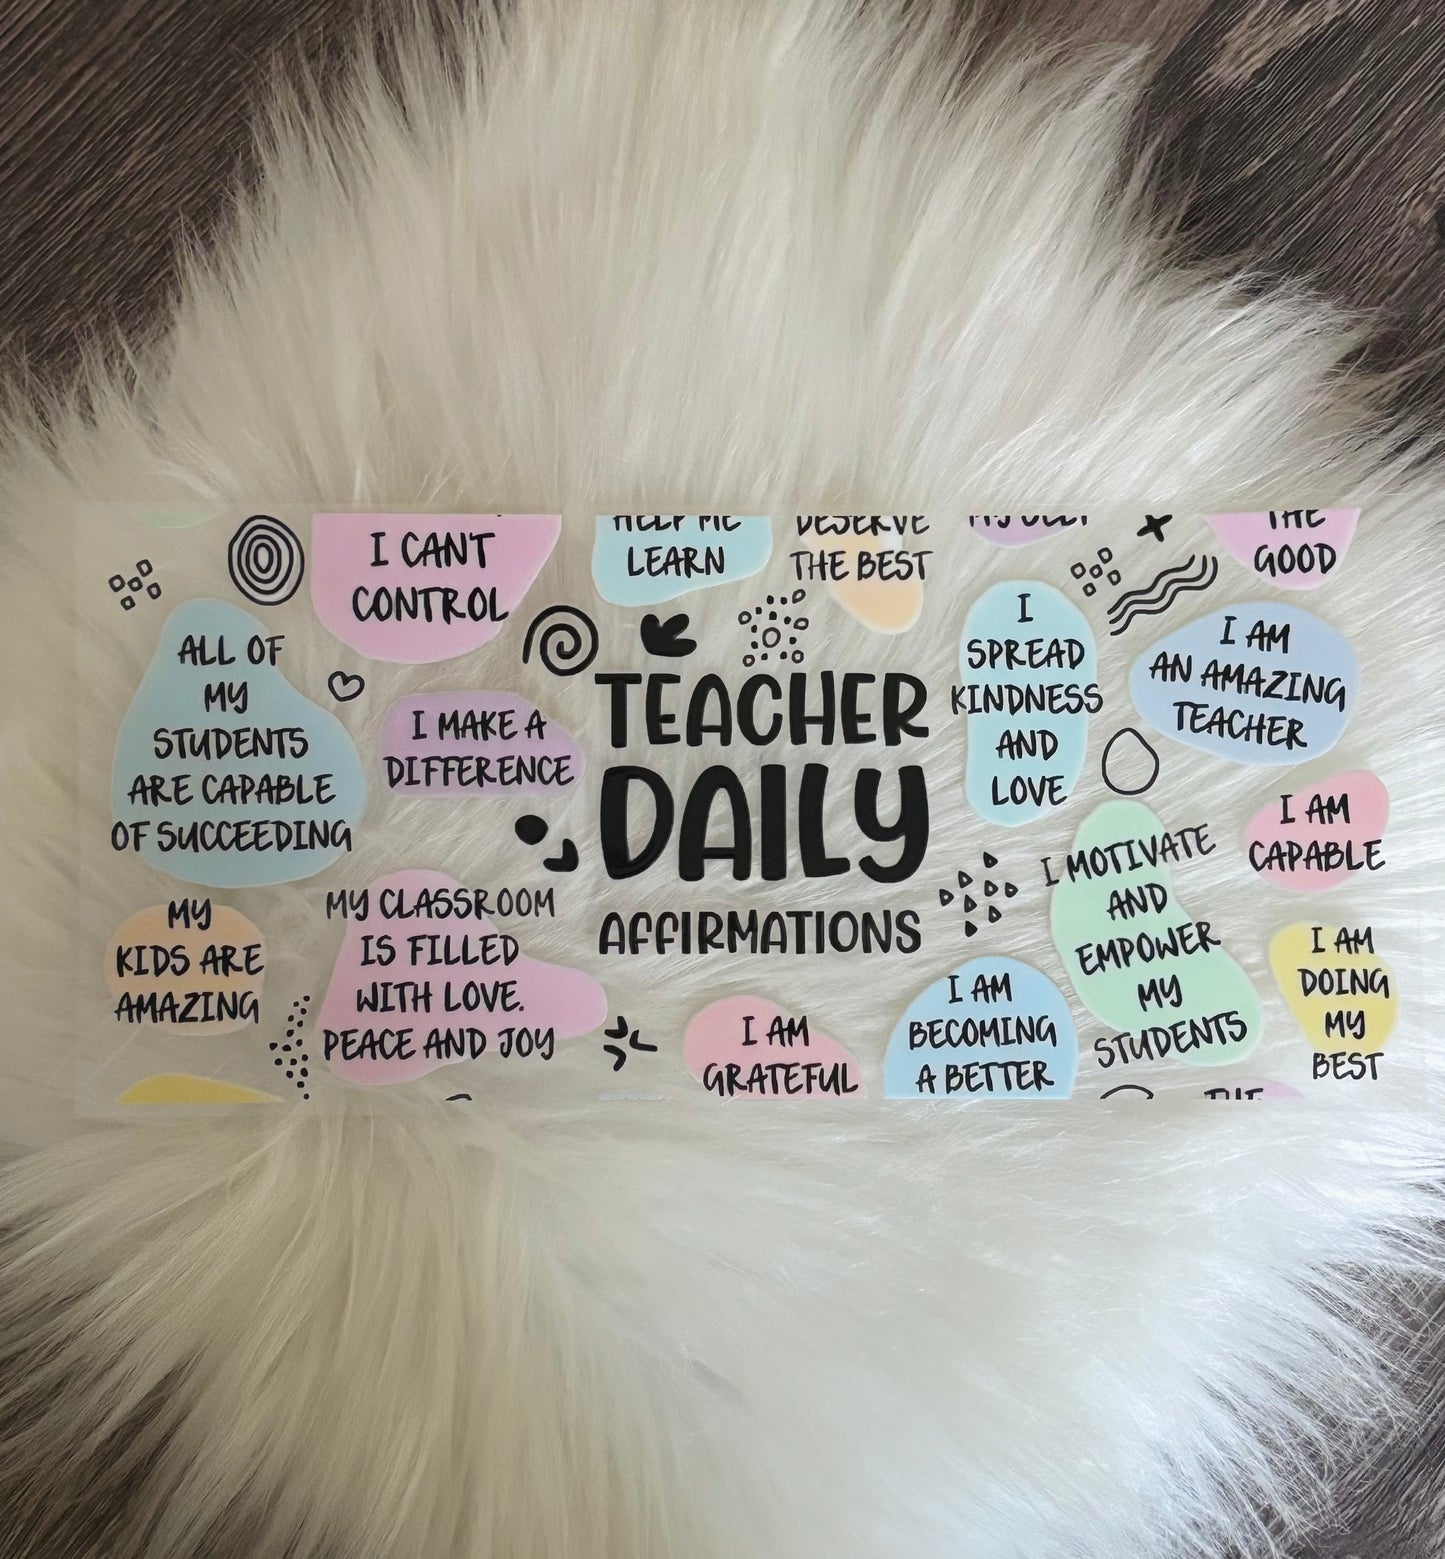 I CANT
CONTROL
HELP ME
LEARN
DESERVE
THE BEST
THE
GOOD
ALL OF
MY
STUDENTS
ARE CAPABLE
OF SUCCEEDING
I MAKE A
DIFFERENCE
TEACHER
DAILY
AFFIRMATIONS
I
SPREAD
KINDNESS
AND
LOVE
I AM
AN AMAZING
TEACHER
I AM
CAPABLE
I MOTIVATE
AND
EMPOWER
MY
STUDENTS
MY
KIDS ARE
AMAZING
MY CLASSROOM
IS FILLED
WITH LOVE.
PEACE AND JOY
I AM
GRATEFUL
I AM
BECOMING
A BETTER
I AM
DOING
MY
BEST